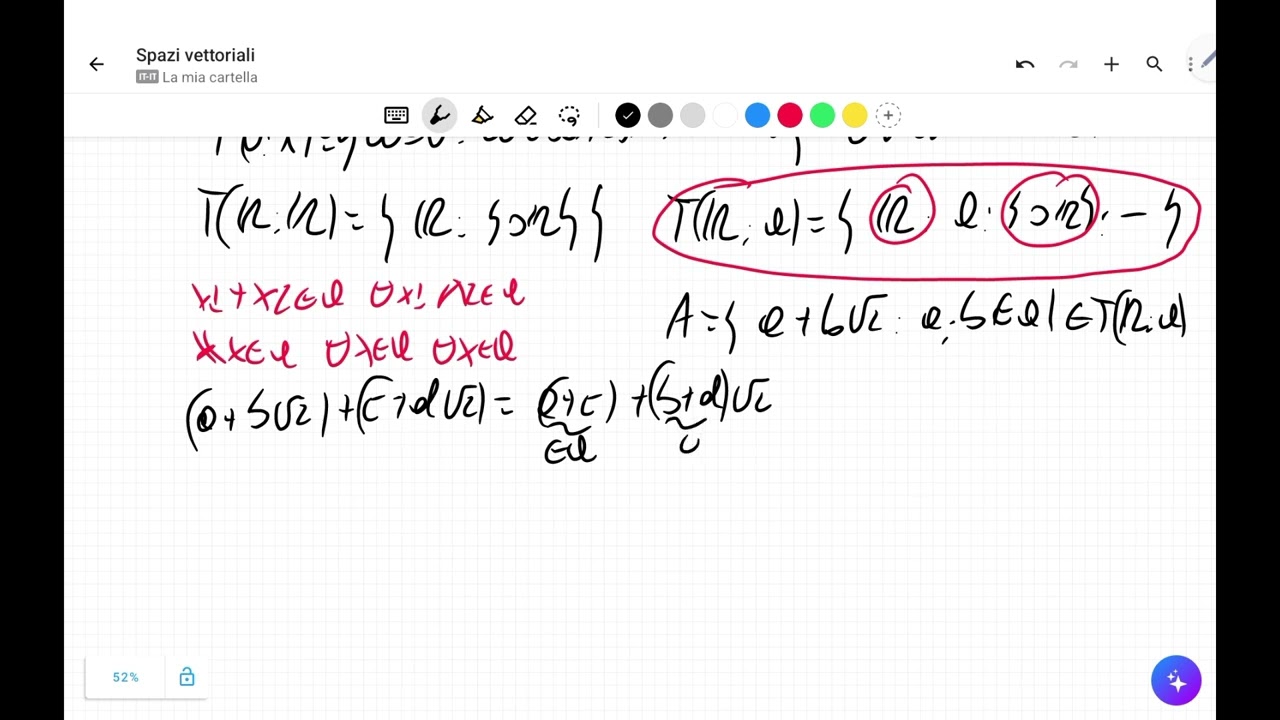 Spazi vettoriali
IT-IT La mia cartella
T(R; R) = { R: {0R} }
T(R; Q) = { R Q: {0R}; — }
x1 + x2 ∈ Q ∀x1, x2 ∈ Q
A = { a + b√2: a, b ∈ Q } ∈ T(R; Q)
λx ∈ Q ∀λ ∈ Q ∀x ∈ Q
(a + b√2) + (c + d√2) = (a + c) + (b + d)√2
∈Q
52%